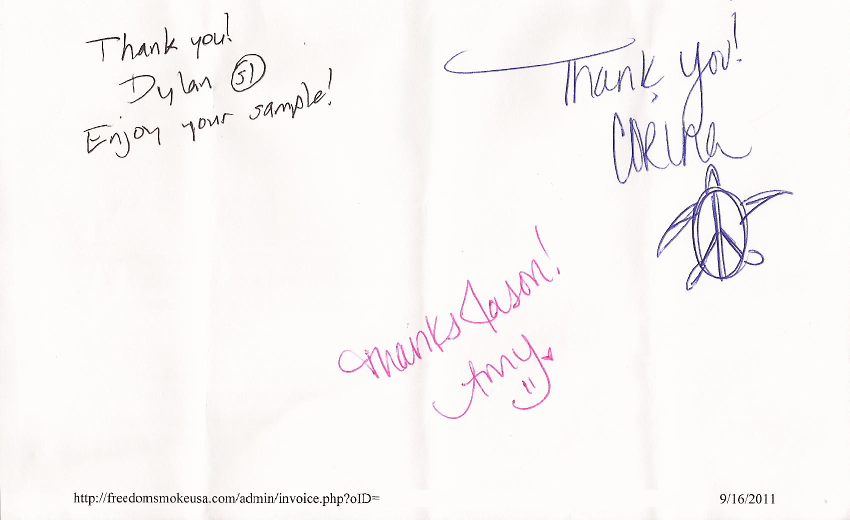 Thank you!
Dylan 51
Enjoy your sample!
Thank you!
CORINA
Thanks Jason!
Amy
http://freedomsmokeusa.com/admin/invoice.php?oID=
9/16/2011